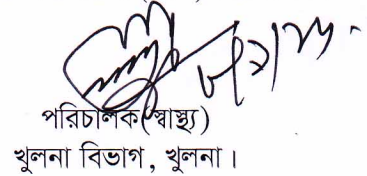 পরিচালক(স্বাস্থ্য)
খুলনা বিভাগ, খুলনা।